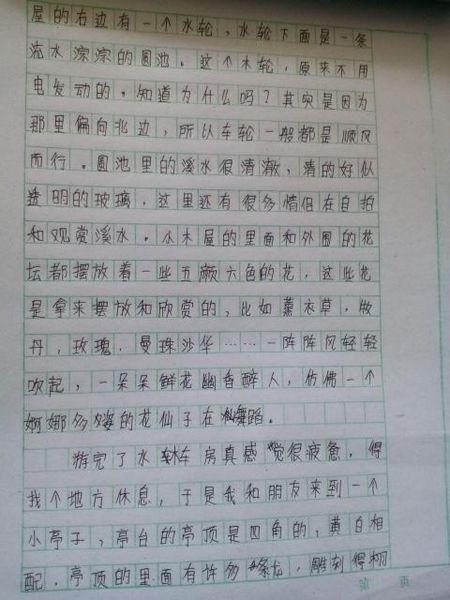 屋的右边有一个水轮，水轮下面是一条
流水淙淙的圆池。这个木轮，原来不用
电发动的。知道为什么吗？其实是因为
那里偏向北边，所以车轮一般都是顺风
而行。圆池里的溪水很清澈，清的好似
透明的玻璃，这里还有很多情侣在自拍
和观赏溪水。小木屋的里面和外围的花
坛都摆放着一些五颜六色的花，这些花
是拿来摆放和欣赏的，比如薰衣草，牧
丹，玫瑰，曼珠沙华……一阵阵风轻轻
吹起，一朵朵鲜花幽香醉人，仿佛一个
婀娜多姿的花仙子在舞蹈。
游完了水车房真感觉很疲惫，得
找个地方休息，于是我和朋友来到一个
小亭子，亭台的亭顶是四角的，黄白相
配，亭顶的里面有许多条龙，雕刻得栩
第 页